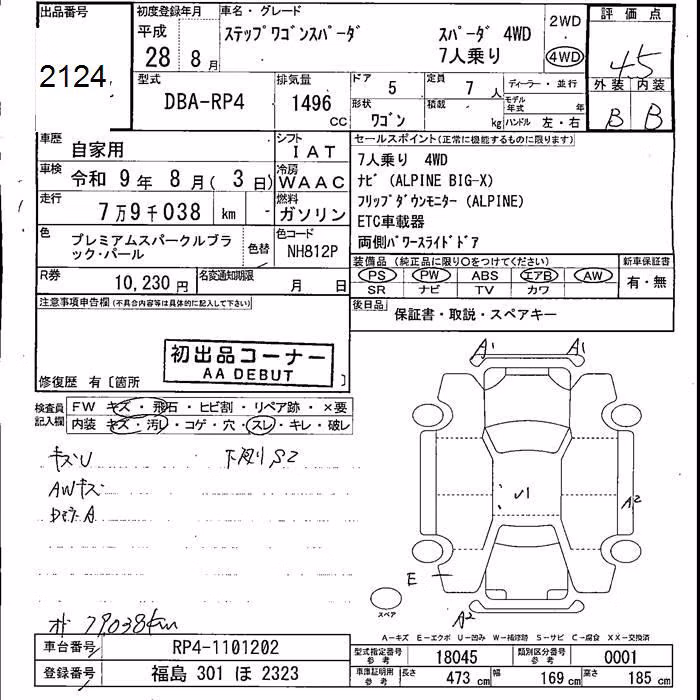 出品番号
2124
初度登録年月
平成
28年 8月
車名・グレード
ステップワゴンスパーダ スパーダ 4WD
7人乗り
2WD
4WD
評価点
4.5
外装 内装
B B
型式
DBA-RP4
排気量
1496 CC
ドア 5
形状 ワゴン
定員 7人
積載 kg
ディーラー・並行
モデル年式 年
ハンドル 左・右
車歴
自家用
シフト
IAT
車検
令和 9年 8月( 3日)
冷房
WAAC
走行
7万9千038 km
燃料
ガソリン
色
プレミアムスパークルブラック・パール
色替
色コード
NH812P
R券
10,230円
名変通知期限
月 日
セールスポイント(正常に機能するものに限ります)
7人乗り 4WD
ナビ(ALPINE BIG-X)
フリップダウンモニター(ALPINE)
ETC車載器
両側パワースライドドア
装備品(純正品に限り○をつけてください)
PS PW ABS エアB AW
SR ナビ TV カワ
新車保証書
有・無
後日品
保証書・取説・スペアキー
注意事項申告欄(不具合内容等は具体的に記入して下さい)
初出品コーナー
AA DEBUT
修復歴 有〔箇所 〕
検査員記入欄
FW キズ・飛石・ヒビ割・リペア跡・×要
内装 キズ・汚レ・コゲ・穴・スレ・キレ・破レ
キズU 下廻りS2
AWキズ
A
79038km
A1 A1
U1
A2
E
A2
スペア
A−キズ E−エクボ U−凹み W−補修跡 S−サビ C−腐食 XX−交換済
車台番号
RP4-1101202
登録番号
福島 301 ほ 2323
型式指定番号 参考 18045
類別区分番号 参考 0001
車庫証明用 参考 長さ 473cm 幅 169cm 高さ 185cm